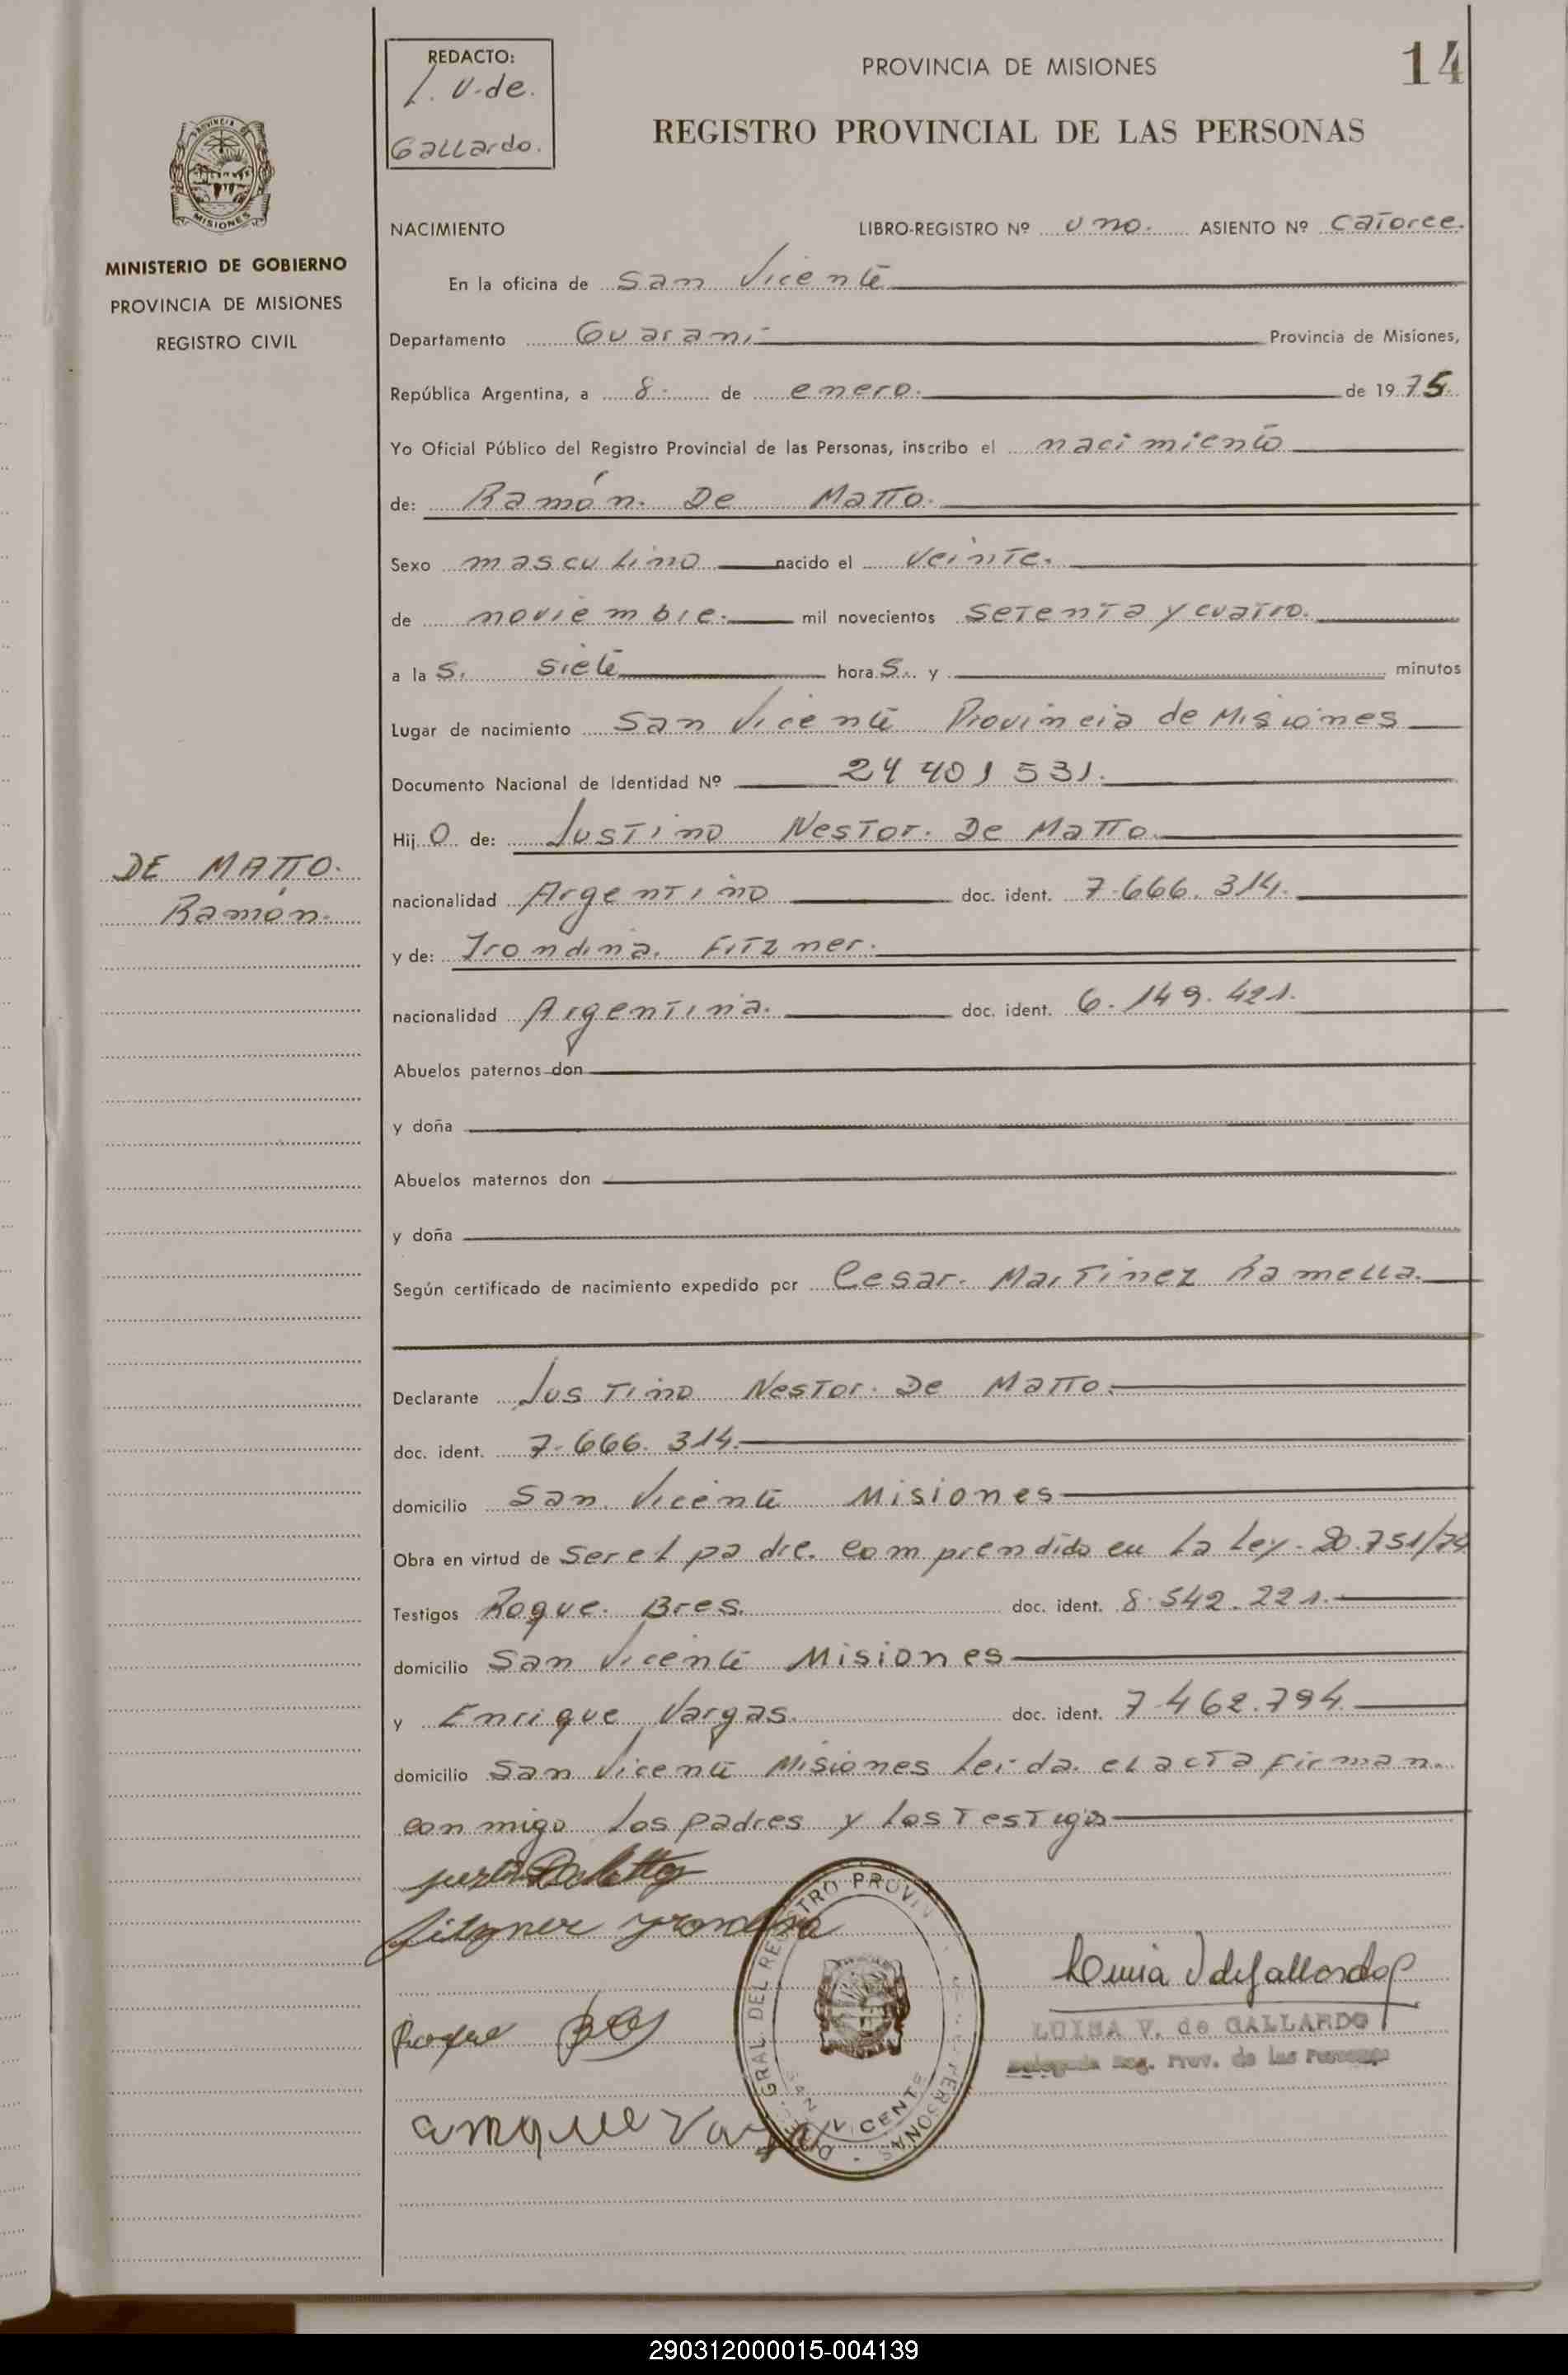 REDACTO:
L. V. de.
Gallardo.
PROVINCIA DE MISIONES
14
REGISTRO PROVINCIAL DE LAS PERSONAS
PROVINCIA DE
MISIONES
MINISTERIO DE GOBIERNO
PROVINCIA DE MISIONES
REGISTRO CIVIL
NACIMIENTO LIBRO-REGISTRO Nº uno. ASIENTO Nº catorce.
En la oficina de San Vicente
Departamento Guaraní Provincia de Misiones,
República Argentina, a 8. de enero. de 1975.
Yo Oficial Público del Registro Provincial de las Personas, inscribo el nacimiento
de: Ramón. De Matto.
Sexo masculino nacido el veinte.
de noviembre. mil novecientos setenta y cuatro.
a las. siete horas. y minutos
Lugar de nacimiento San Vicente Provincia de Misiones
Documento Nacional de Identidad Nº 24 401 531.
Hijo de: Justino Nestor. De Matto.
DE MATTO.
Ramón.
nacionalidad Argentino doc. ident. 7.666.314.
y de: Irondina. Fitzner.
nacionalidad Argentina. doc. ident. 6.149.421.
Abuelos paternos don
y doña
Abuelos maternos don
y doña
Según certificado de nacimiento expedido por Cesar. Martinez Ramella.
Declarante Justino Nestor. De Matto.
doc. ident. 7.666.314.
domicilio San Vicente Misiones
Obra en virtud de ser el padre. comprendido en la Ley. 20.751/74
Testigos Roque. Bres. doc. ident. 8.542.221.
domicilio San Vicente Misiones
y Enrique Vargas. doc. ident. 7.462.794.
domicilio San Vicente Misiones Leida el acta firman.
conmigo los padres y los testigos
fitzner yrondina
Roque Bres
enrique Vargas
GRAL. DEL REGISTRO PROVIN
PERSONAS
SAN VICENTE
Luisa V de Gallardo
LUISA V. de GALLARDO
Delegada Reg. Prov. de las Personas
290312000015-004139